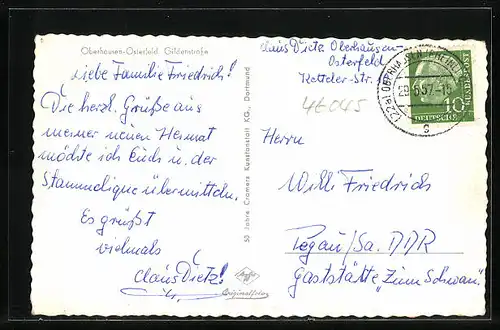 Oberhausen-Osterfeld Gildenstraße
Claus Dietz Oberhausen-
Osterfeld
Str.
46045
Liebe Familie Friedrich!
Die herzl. Grüße aus
meiner neuen Heimat
möchte ich Euch u. der
Stammclique übermitteln.
Es grüßt
vielmals
Claus Dietz!
50 Jahre Cramers Kunstanstalt KG., Dortmund
Agfa
Originalfoto
(22a) OBERHAUSEN (RHEINL)
29.6.57-15
c
10
DEUTSCHE
BUNDESPOST
Herrn
Willi Friedrich
Pegau/Sa. DDR
Gaststätte "Zum Schwan"